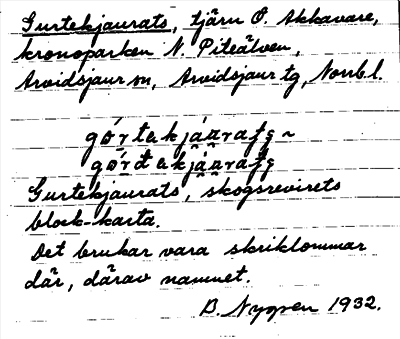 Gurtekjaurats, tjärn Ö. Akkavare,
kronoparken N. Piteälven,
Arvidsjaur sn, Arvidsjaur tg, Norrb. l.
Gurtekjaurats, skogsrevirets
block-karta.
Det brukar vara skriklommar
där, därav namnet.
B. Nygren 1932.